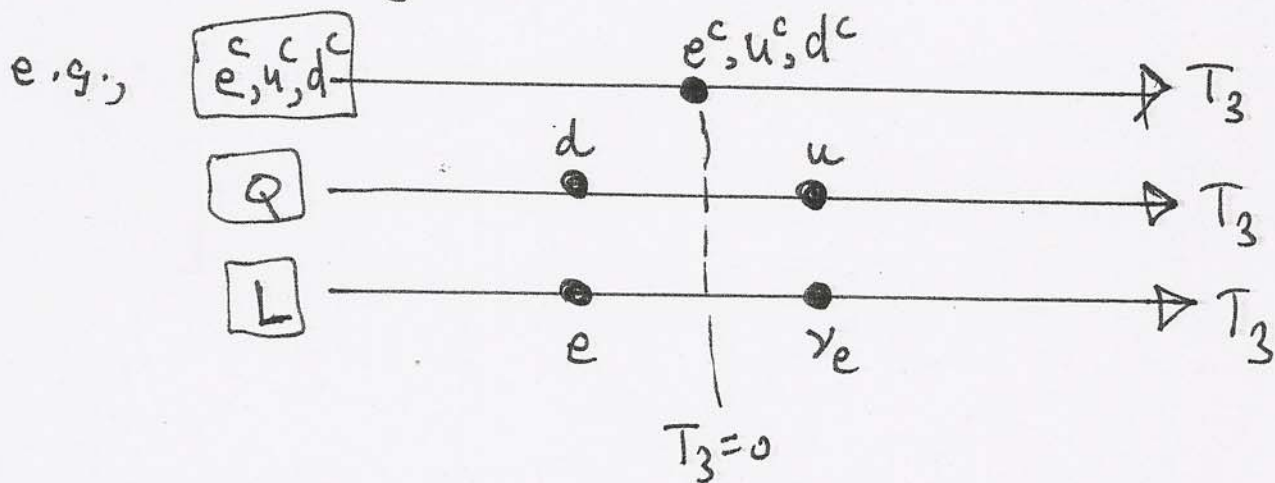 e.g., e^c, u^c, d^c e^c, u^c, d^c T_3
d u
Q T_3
L T_3
e ν_e
T_3=0